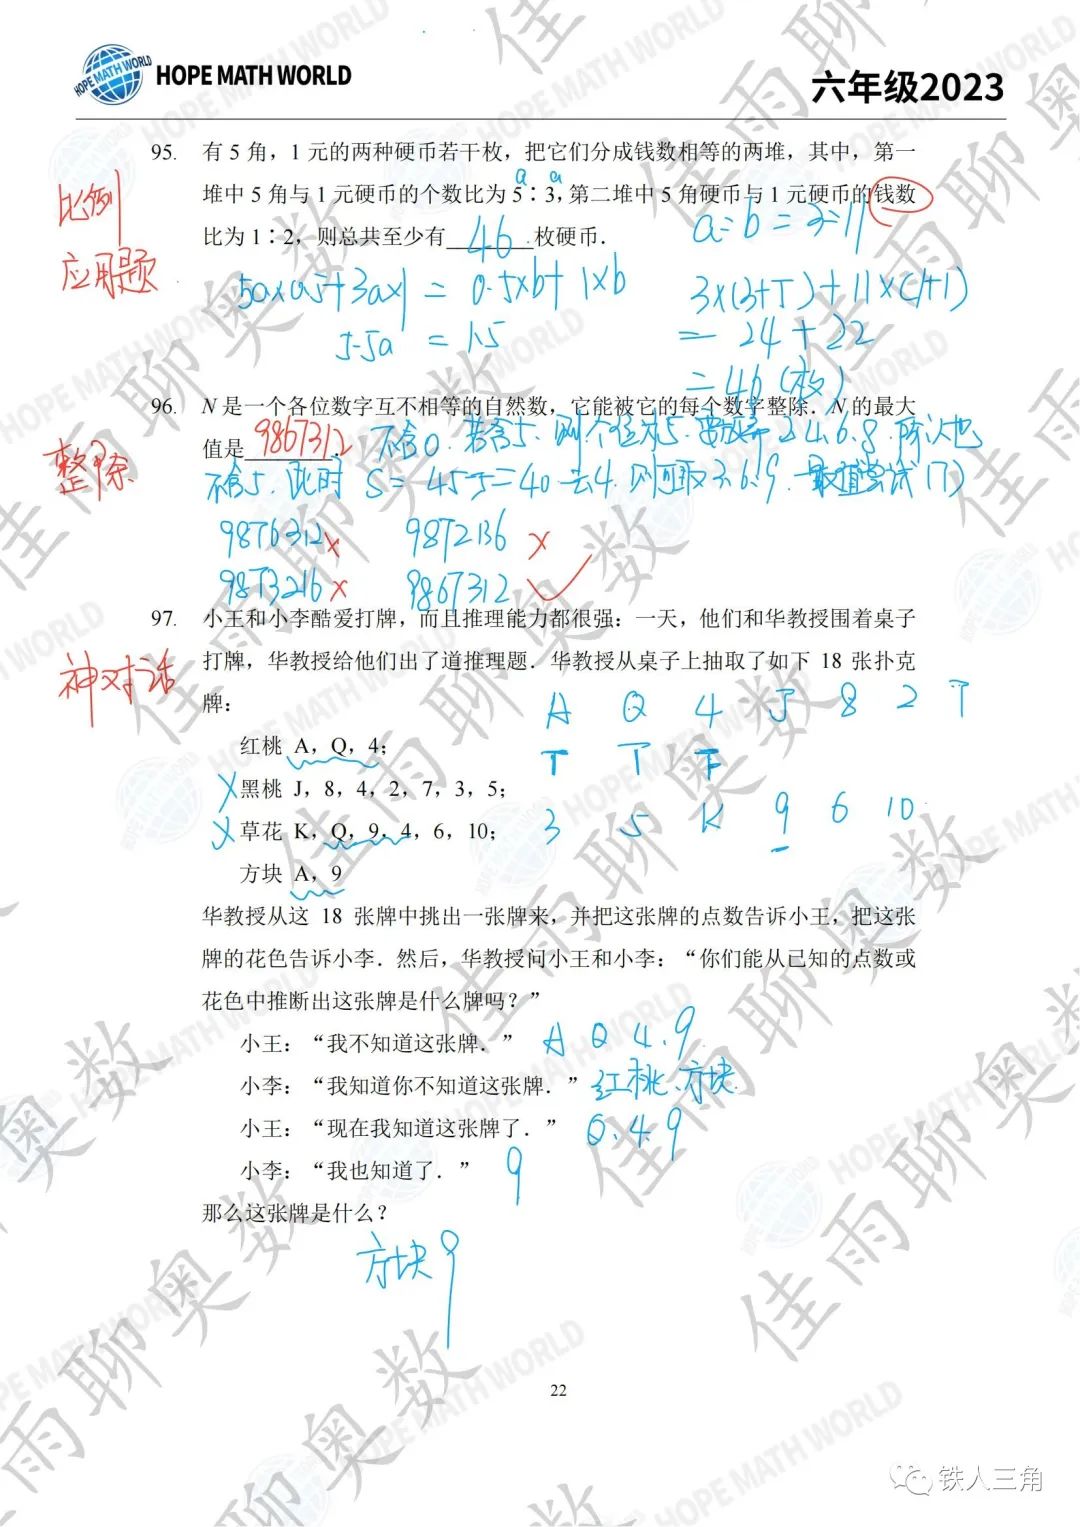 HOPE MATH WORLD
六年级2023
95. 有 5 角，1 元的两种硬币若干枚，把它们分成钱数相等的两堆，其中，第一
堆中 5 角与 1 元硬币的个数比为 5∶3，第二堆中 5 角硬币与 1 元硬币的钱数
比为 1∶2，则总共至少有 46 枚硬币．
比例
应用题
a a
a:b=3:11
5a×0.5+3a×1=0.5×b+1×b
5.5a=1.5
3×(3+5)+11×(1+1)
=24+22
=46(枚)
96. N 是一个各位数字互不相等的自然数，它能被它的每个数字整除．N 的最大
值是 9867312
整除
不含0.若含5.则个位为5.
2.4.6.8.所以也
不含5.此时 S=45-5=40.去4.则可取3.6.9.最值尝试(7)
9876312× 9872136×
9873216× 9867312✓
97. 小王和小李酷爱打牌，而且推理能力都很强：一天，他们和华教授围着桌子
打牌，华教授给他们出了道推理题．华教授从桌子上抽取了如下 18 张扑克
牌：
神对话
A Q 4 J 8 2 7
红桃 A，Q，4；
×黑桃 J，8，4，2，7，3，5；
×草花 K，Q，9，4，6，10；
3 5 K 9 6 10
方块 A，9
华教授从这 18 张牌中挑出一张牌来，并把这张牌的点数告诉小王，把这张
牌的花色告诉小李．然后，华教授问小王和小李：“你们能从已知的点数或
花色中推断出这张牌是什么牌吗？”
小王：“我不知道这张牌．” A Q 4.9
小李：“我知道你不知道这张牌．” 红桃.方块
小王：“现在我知道这张牌了．” Q.4.9
小李：“我也知道了．” 9
那么这张牌是什么？
方块9
22
铁人三角
佳雨聊奥数